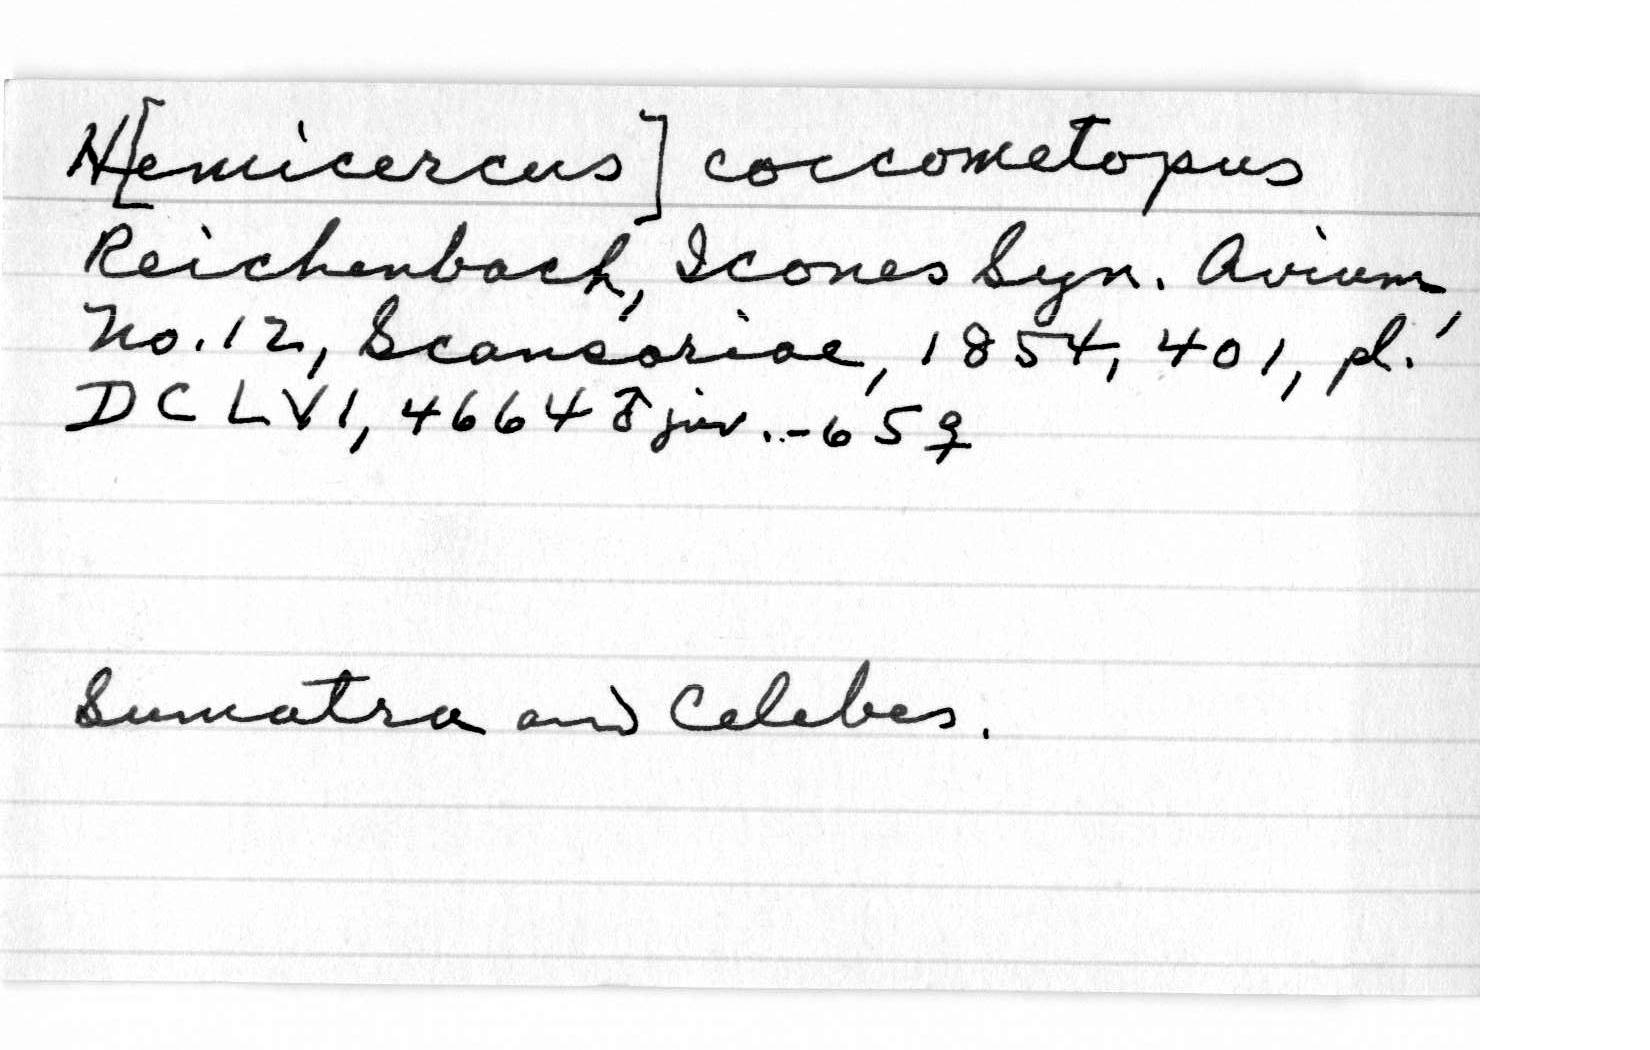 H[emicercus] coccometopus
Reichenbach, Icones Syn. Avium,
No. 12, Scansoriae, 1854, 401, pl.
DCLVI, 4664 ♂ juv. -65 ♀
Sumatra and Celebes.